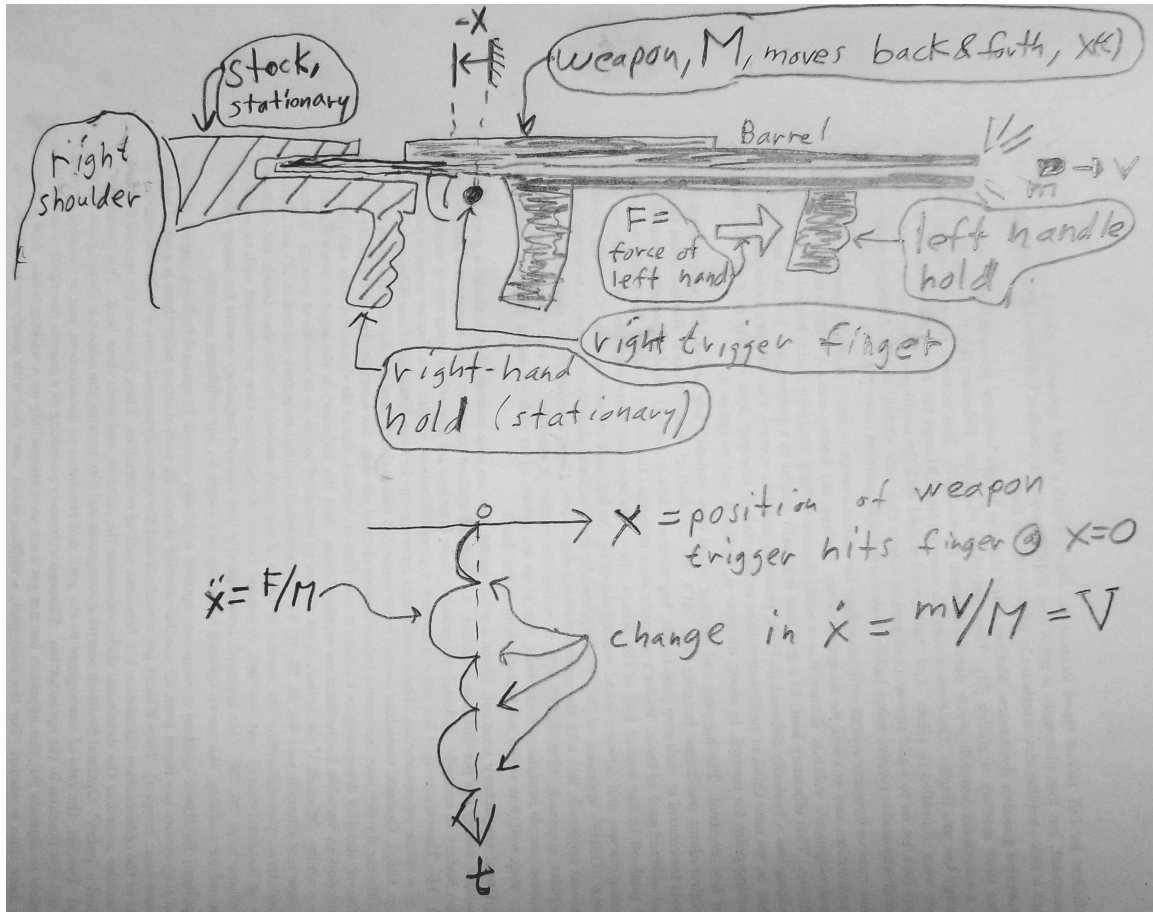 -X
stock,
stationary
weapon, M, moves back & forth, x(t)
right
shoulder
Barrel
m → v
F=
force of
left hand
left handle
hold
right trigger finger
right-hand
hold (stationary)
0
X = position of weapon
trigger hits finger @ x=0
ẍ = F/M
change in ẋ = mv/M = V
t